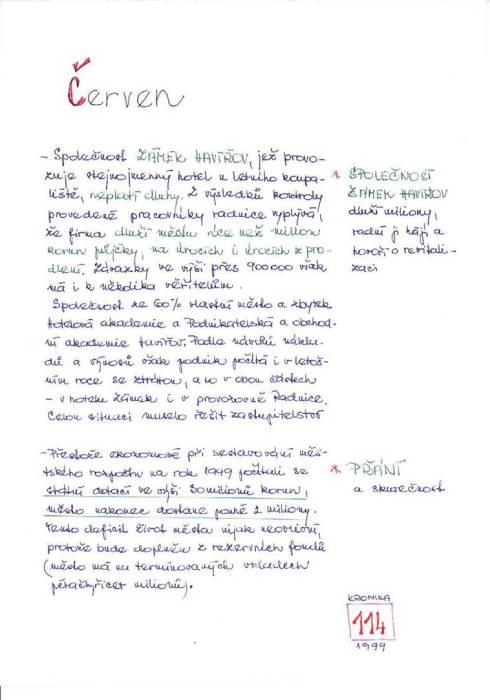 Červen
- Společnost ZÁMEK HAVÍŘOV, jež provo-
zuje stejnojmenný hotel u letního koupa-
liště, neplatí dluhy. Z výsledků kontroly
provedené pracovníky radnice vyplývá,
že firma dluží městu více než milion
korun půjčky, na úrocích i úrocích z pro-
dlení. Závazky ve výši přes 900 000 však
má i k několika věřitelům.
Společnost ze 60% vlastní město a zbytek
Hotelová akademie a Podnikatelská a obchod-
ní akademie Havířov. Podle návrhů nákla-
dů a výnosů však podnik počítá i v letoš-
ním roce se ztrátou, a to v obou
- v hotelu Zámek i v provozovně Radnice.
Celou situaci muselo řešit zastupitelstvo
* SPOLEČNOST
ZÁMEK HAVÍŘOV
dluží miliony,
radní ji hájí a
hovoří o revitali-
zaci
- Přestože ekonomové při sestavování měst-
ského rozpočtu na rok 1999 počítali se
státní dotací ve výši 30 milionů korun,
město nakonec dostane pouze 2 miliony.
Tento deficit život města nijak neovlivní,
protože bude doplněn z rezervních fondů
(město má na termínovaných vkladech
pětačtyřicet milionů).
* PŘÁNÍ
a skutečnost
KRONIKA
114
1999